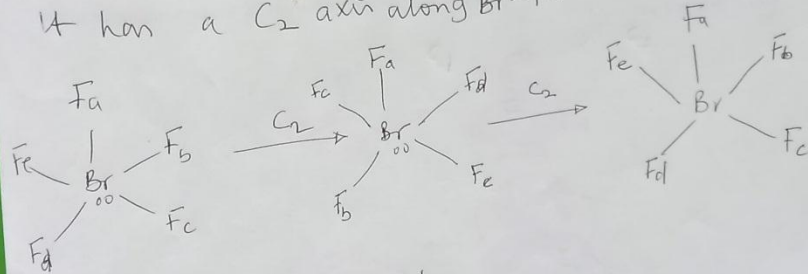 It has a C2 axis along Br
Fa
Fe Fb
Br
Fd Fc
C2
Fa
Fc Fd
Br
Fb Fe
C2
Fa
Fe Fb
Br
Fd Fc